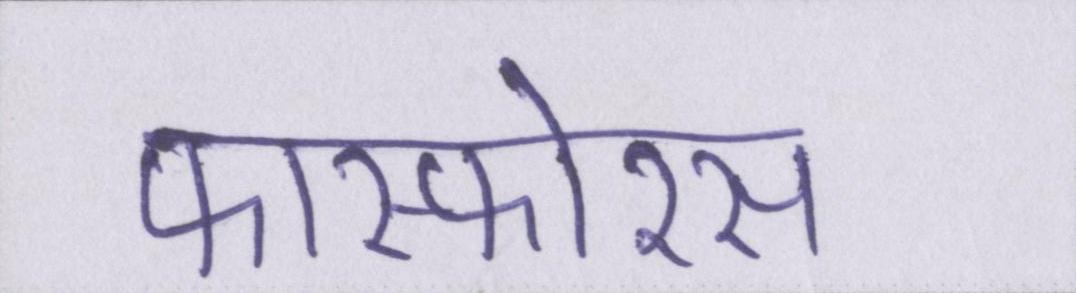 फास्फोरस